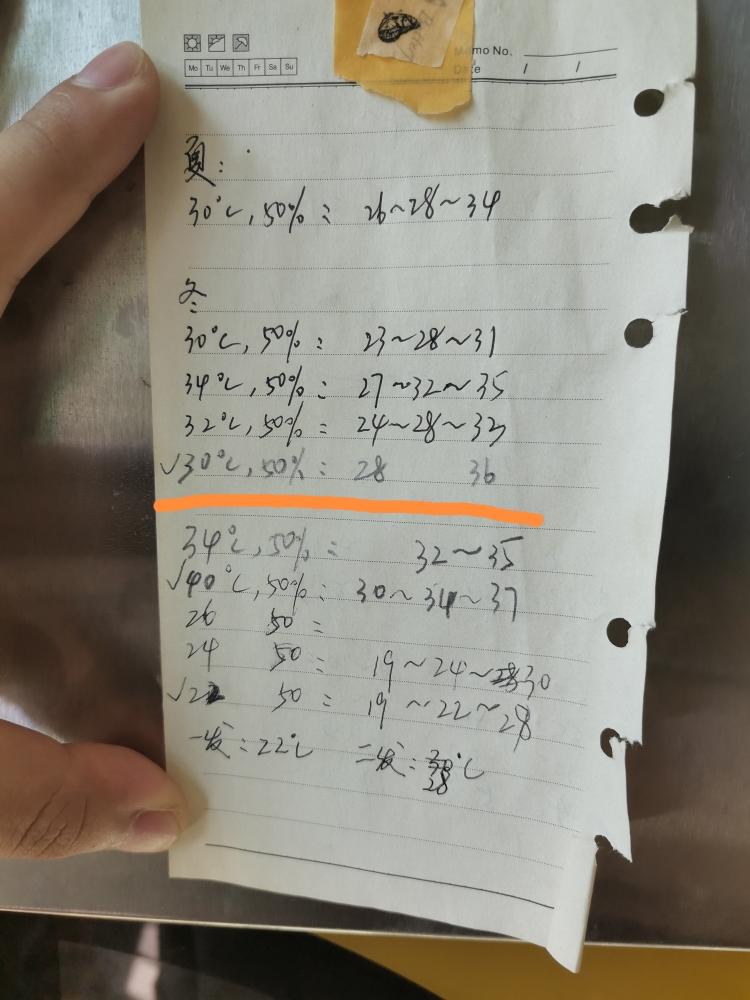 Mo Tu We Th Fr Sa Su
Memo No.
Date / /
夏:
30℃, 50%: 26~28~34
冬:
30℃, 50%: 23~28~31
34℃, 50%: 27~32~35
32℃, 50%: 24~28~33
√30℃, 50%: 28 36
34℃, 50%: 32~35
√40℃, 50%: 30~34~37
26 50:
24 50: 19~24~30
√22 50: 19~22~28
一发:22℃ 二发:28℃